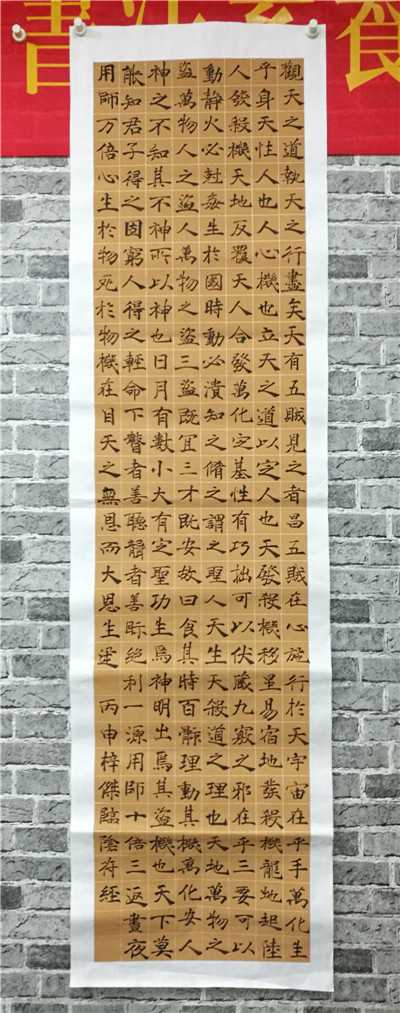 書
觀天之道執天之行盡矣天有五賊見之者昌五賊在心施行於天宇宙在乎手萬化生
乎身天性人也人心機也立天之道以定人也天發殺機移星易宿地發殺機龍蛇起陸
人發殺機天地反覆天人合發萬化定基性有巧拙可以伏藏九竅之邪在乎三要可以
動靜火必尅姦生於國時動必潰知之脩之謂之聖人天生天殺道之理也天地萬物之
盜萬物人之盜人萬物之盜三盜既宜三才既安故曰食其時百骸理動其機萬化安人
神之不知其不神所以神也日月有數小大有定聖功生焉神明出焉其盜機也天下莫
能知君子得之固窮人得之輕命下瞽者善聽聾者善眎絕利一源用師十倍三返晝夜
用師万倍心生於物死於物機在目天之無恩而大恩生 丙申梓傑臨陰符經